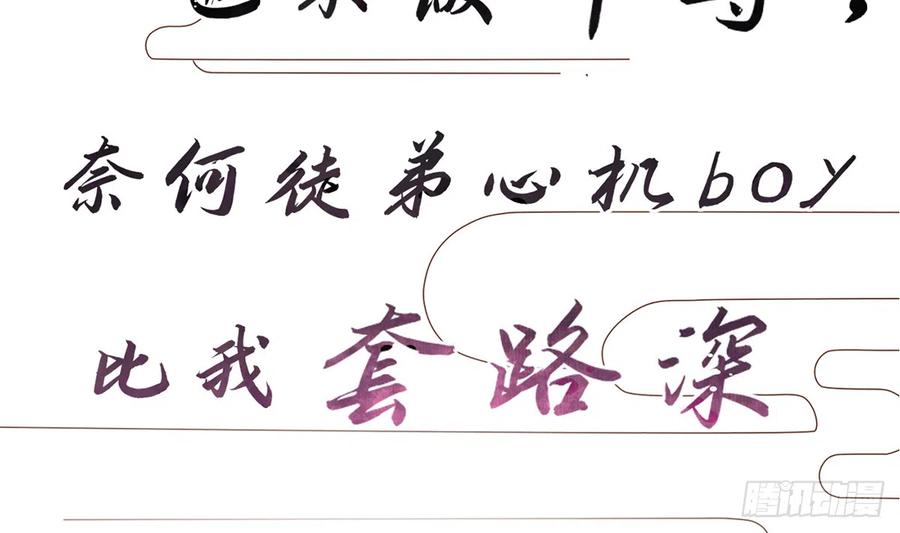 奈何徒弟心机boy
比我套路深
腾讯动漫